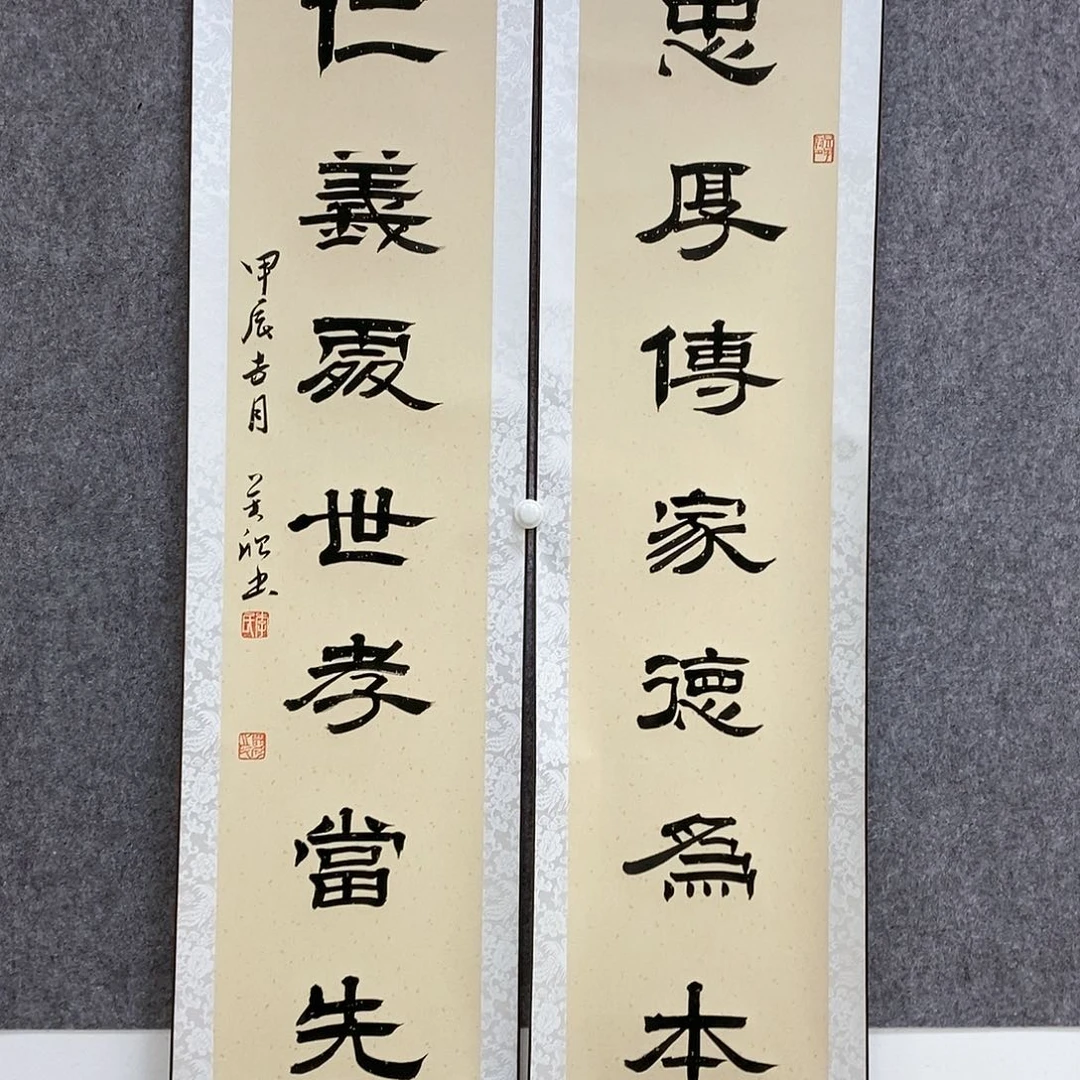 忠厚傳家德為本
仁義處世孝當先
甲辰吉月 书